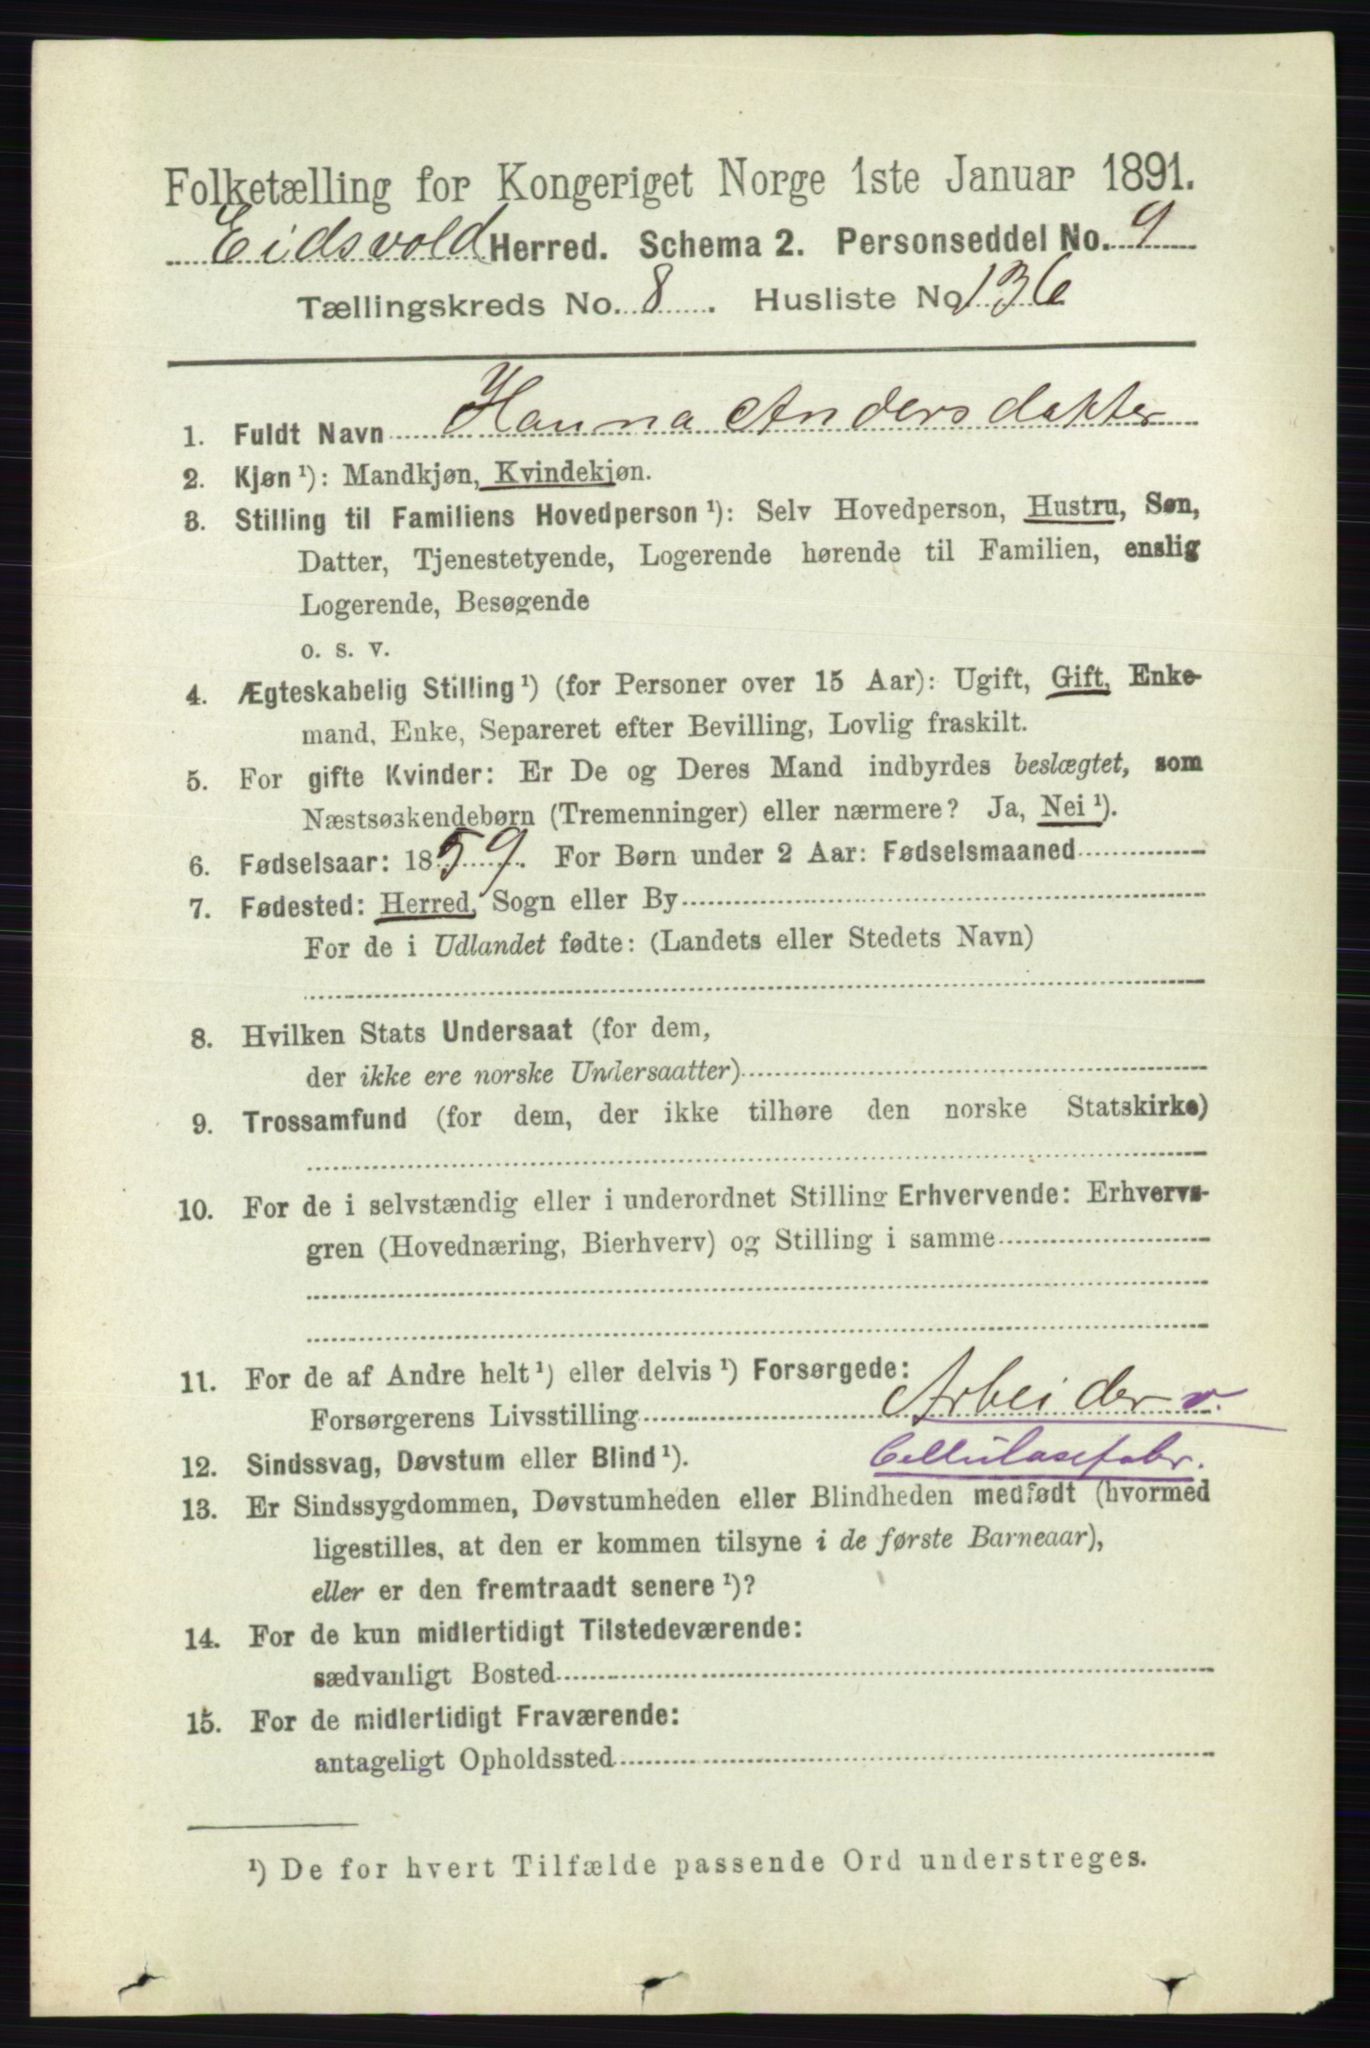 Folketælling for Kongeriget Norge 1ste Januar 1891.
Eidsvold Herred. Schema 2. Personseddel No. 9
Tællingskreds No. 8. Husliste No. 136
1. Fuldt Navn Hanna Andersdatter
2. Kjøn ¹): Mandkjøn, Kvindekjøn.
3. Stilling til Familiens Hovedperson ¹): Selv Hovedperson, Hustru, Søn,
Datter, Tjenestetyende, Logerende hørende til Familien, enslig
Logerende, Besøgende
o. s. v.
4. Ægteskabelig Stilling ¹) (for Personer over 15 Aar): Ugift, Gift, Enke-
mand, Enke, Separeret efter Bevilling, Lovlig fraskilt.
5. For gifte Kvinder: Er De og Deres Mand indbyrdes beslægtet, som
Næstsøskendebørn (Tremenninger) eller nærmere? Ja, Nei ¹).
6. Fødselsaar: 1859. For Børn under 2 Aar: Fødselsmaaned
7. Fødested: Herred, Sogn eller By
For de i Udlandet fødte: (Landets eller Stedets Navn)
8. Hvilken Stats Undersaat (for dem,
der ikke ere norske Undersaatter)
9. Trossamfund (for dem, der ikke tilhøre den norske Statskirke)
10. For de i selvstændig eller i underordnet Stilling Erhvervende: Erhvervs-
gren (Hovednæring, Bierhverv) og Stilling i samme
11. For de af Andre helt ¹) eller delvis ¹) Forsørgede:
Forsørgerens Livsstilling Arbeider v.
12. Sindssvag, Døvstum eller Blind ¹). Cellulosefabr.
13. Er Sindssygdommen, Døvstumheden eller Blindheden medfødt (hvormed
ligestilles, at den er kommen tilsyne i de første Barneaar),
eller er den fremtraadt senere ¹)?
14. For de kun midlertidigt Tilstedeværende:
sædvanligt Bosted
15. For de midlertidigt Fraværende:
antageligt Opholdssted
¹) De for hvert Tilfælde passende Ord understreges.